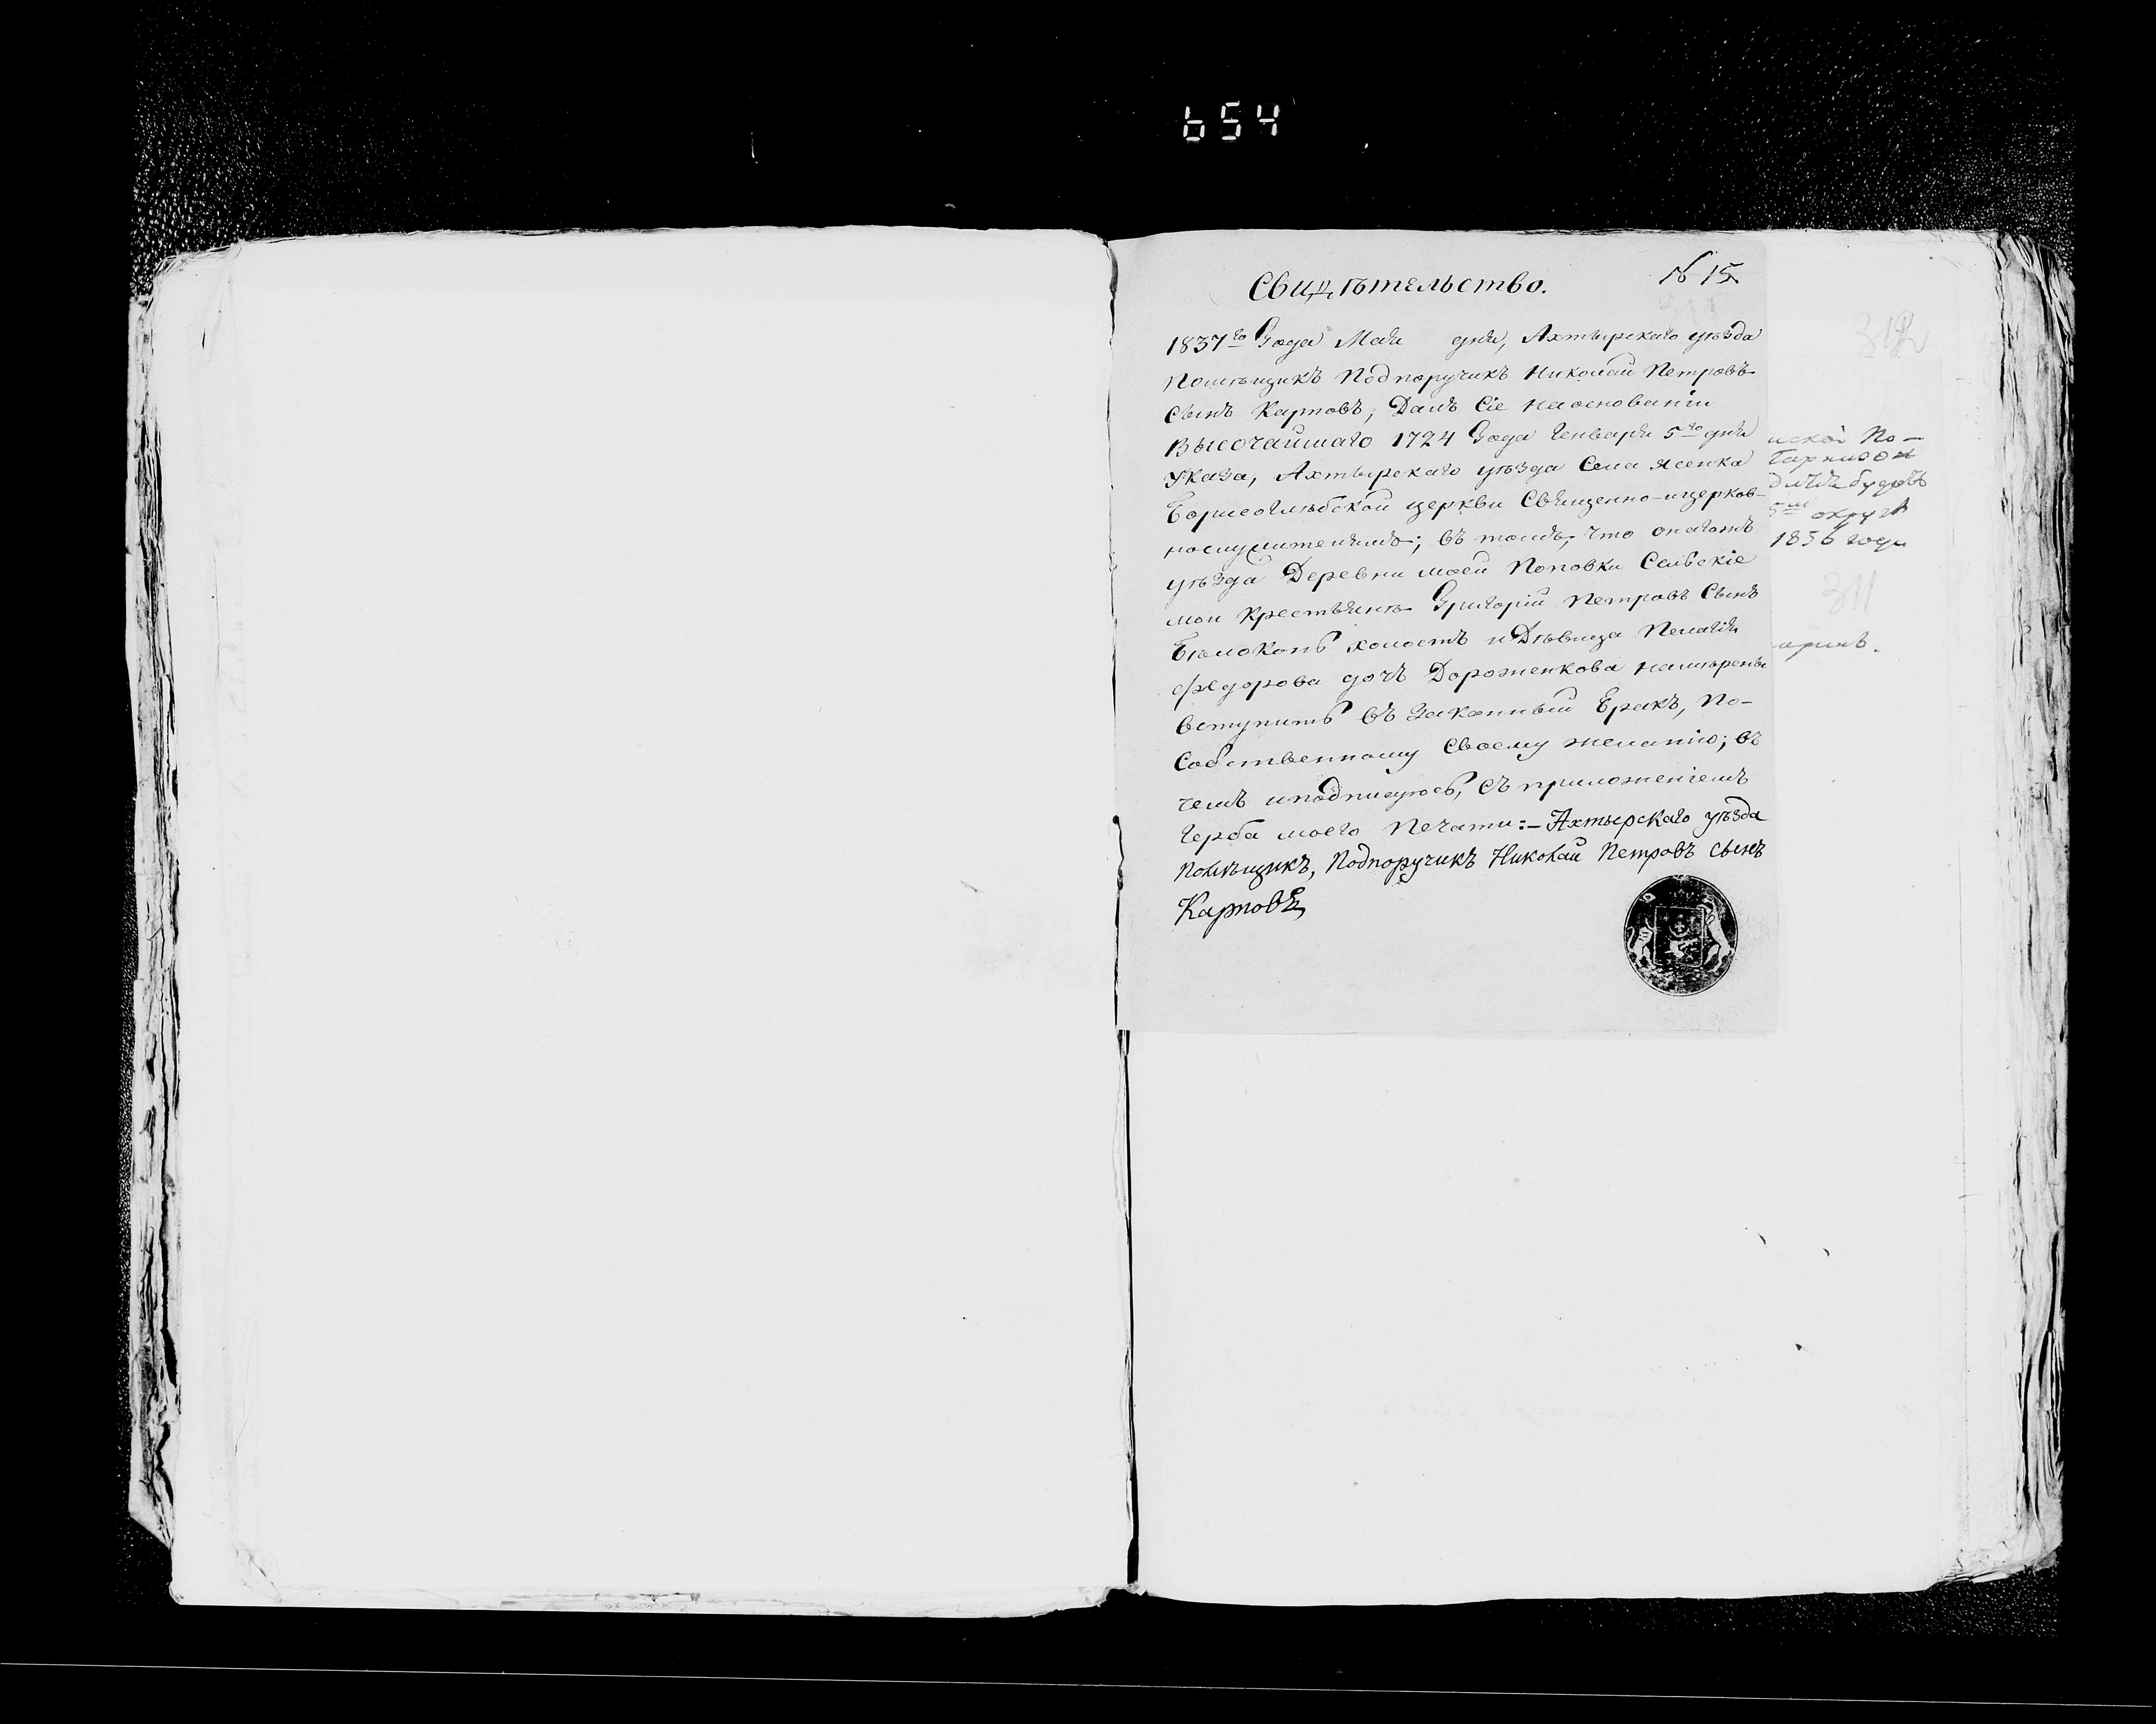 654
Свидѣтельство.
№ 15
312
1837го Года Мая дня, Ахтырскаго уѣзда
Помѣщикъ Подпоручикъ Николай Петровъ
сынъ Карповъ, Далъ Сіе наоснованіи
Высочайшаго 1724 Года Генваря 5го дня
Указа, Ахтырскаго уѣзда Села Ясенка
Борисоглѣбской церкви Священно-ицерков-
нослужителямъ; въ томъ, что онагожъ
уѣзда Деревни моей Поповки Сельскіе
мои Крестьяне Григорій Петровъ Сынъ
Бѣлоконь холостъ и Дѣвица Пелагія
Федорова дочь Дороженкова намѣрены
вступить въ Законный Бракъ, По-
Собственному Своему желанію; въ
чемъ иподписуюсь, съ приложеніемъ
Герба моего Печати:- Ахтырскаго уѣзда
помѣщикъ, Подпоручикъ Николай Петровъ сынъ
Карповъ
ской По-
Гарнизон
будетъ
округа
1836 года
311